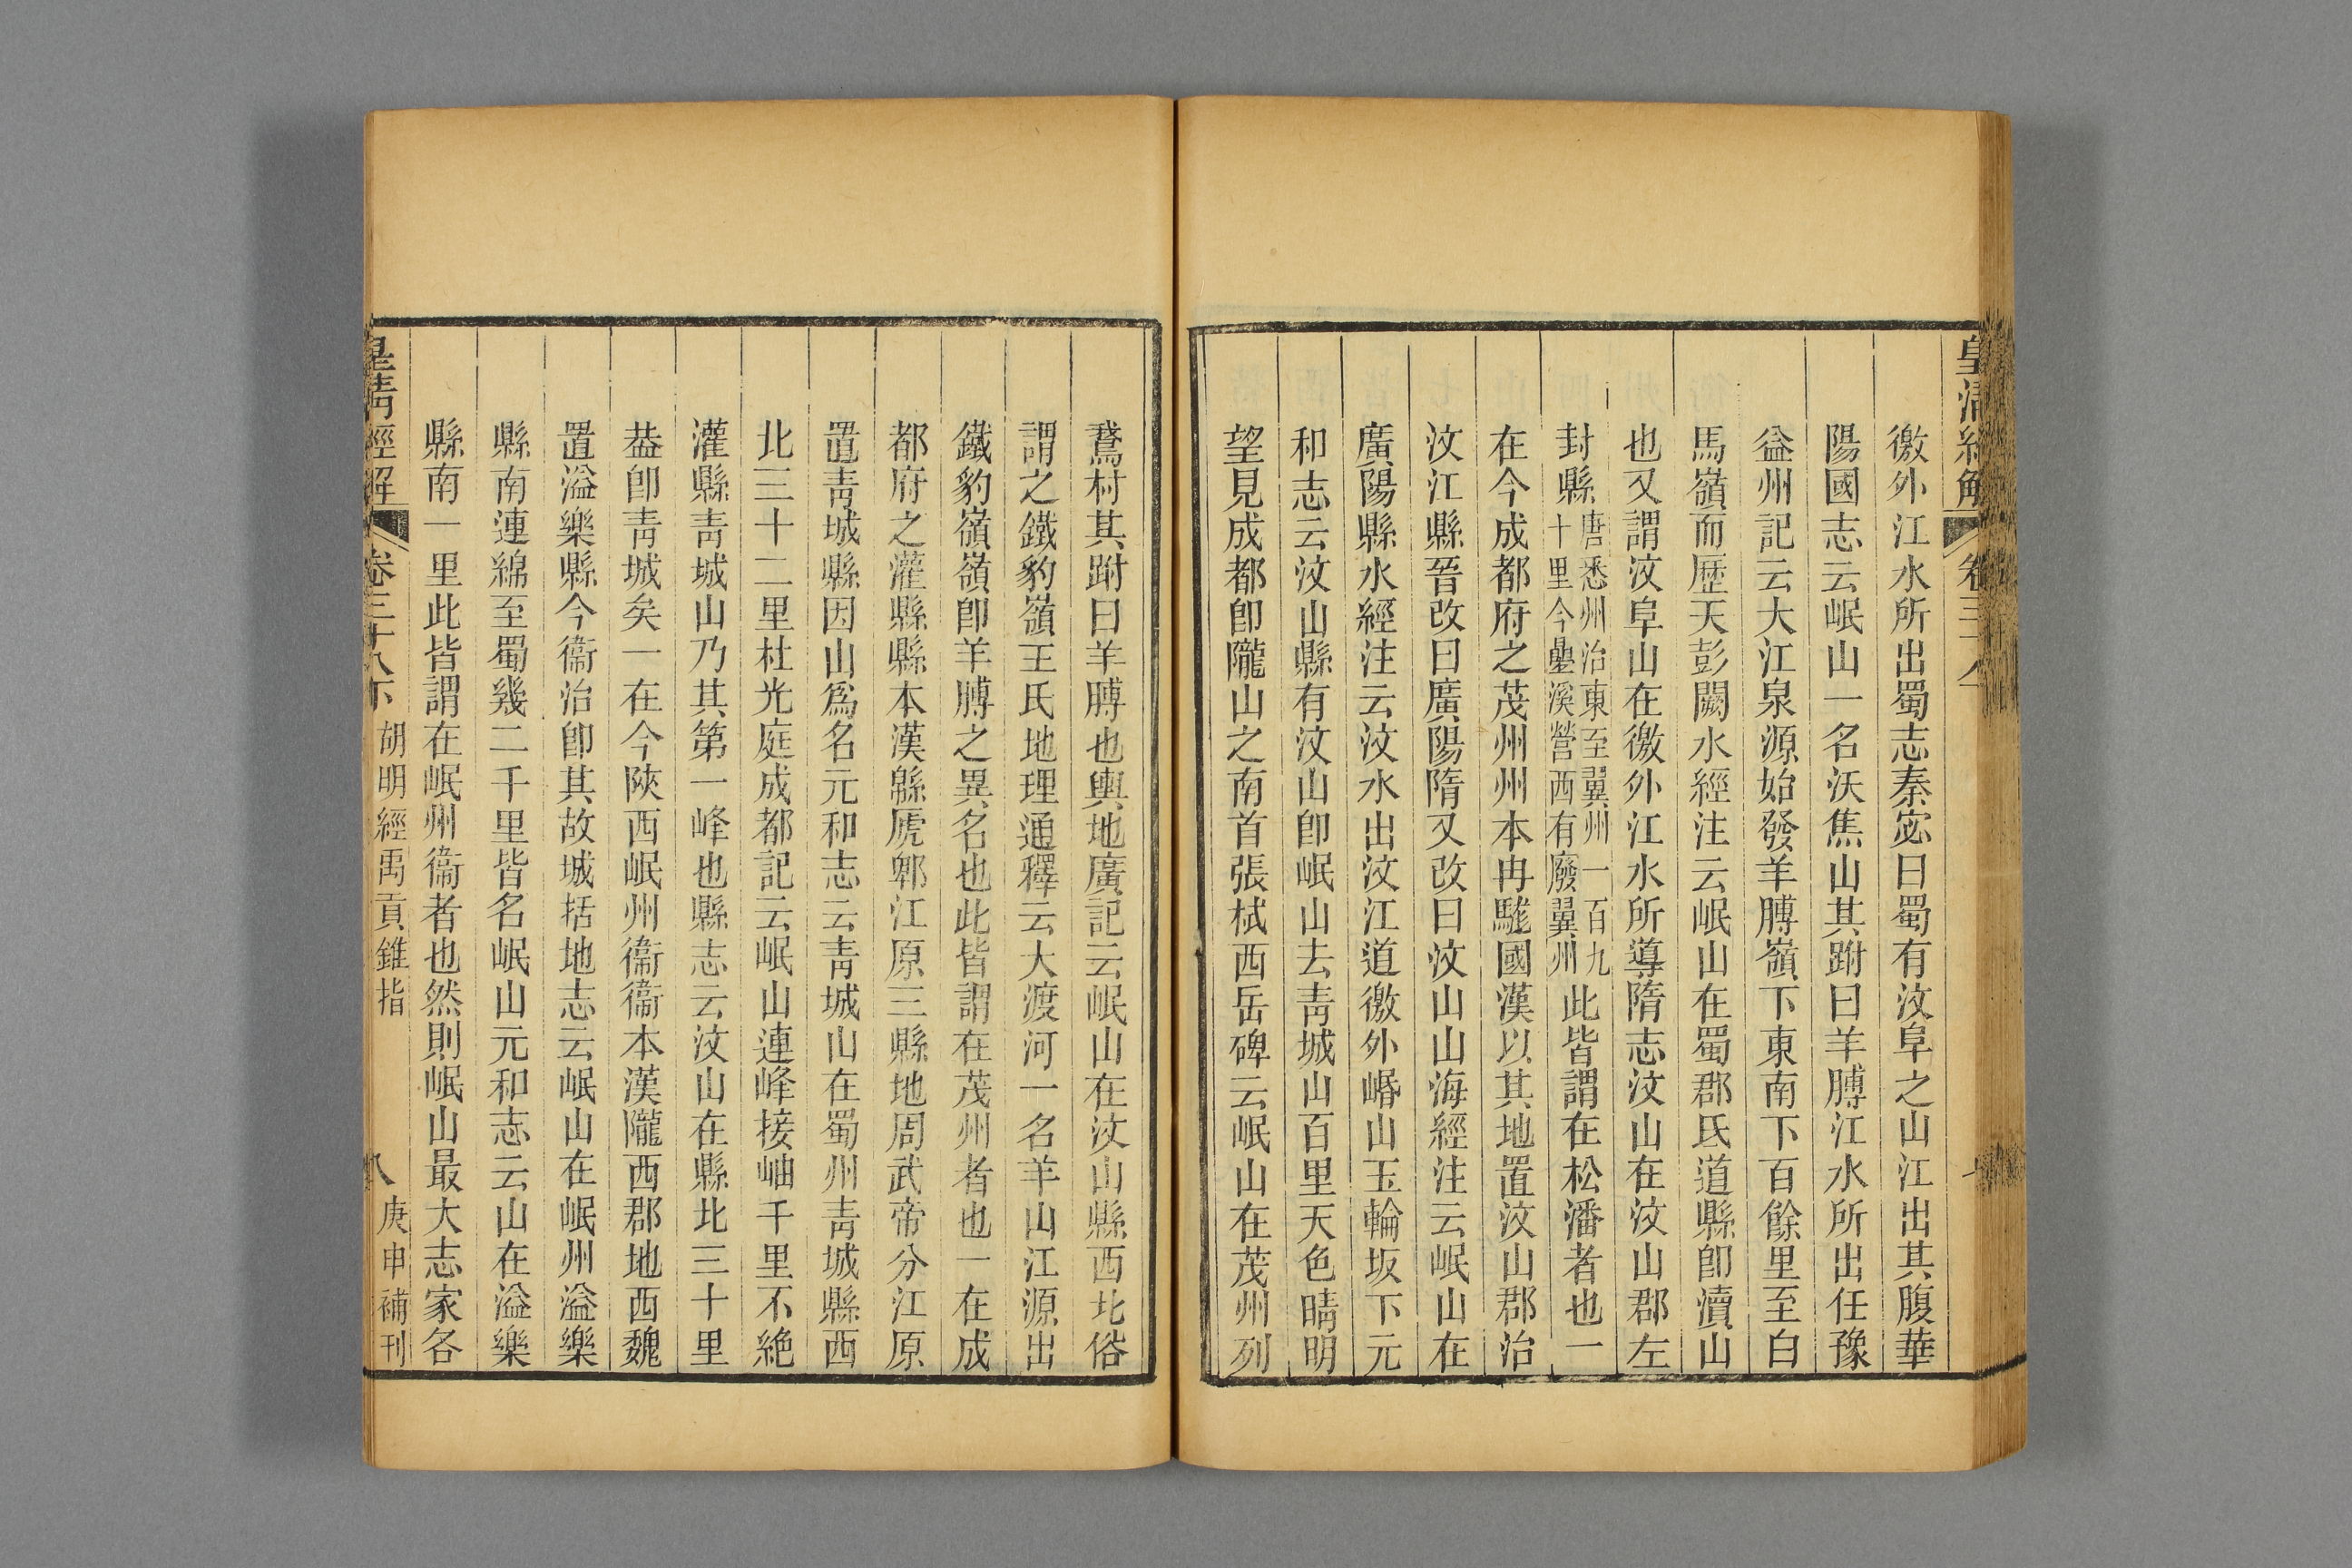 皇清經解 卷三十八下 七
徼外江水所出蜀志秦宓曰蜀有汶阜之山江出其腹華
陽國志云岷山一名沃焦山其跗曰羊膊江水所出任豫
益州記云大江泉源始發羊膊嶺下東南下百餘里至白
馬嶺而歷天彭闕水經注云岷山在蜀郡氐道縣卽瀆山
也又謂汶阜山在徼外江水所導隋志汶山在汶山郡左
封縣唐悉州治東至翼州一百九十里今疊溪營西有廢翼州此皆謂在松潘者也一
在今成都府之茂州州本冉駹國漢以其地置汶山郡治
汶江縣晉改曰廣陽隋又改曰汶山山海經注云岷山在
廣陽縣水經注云汶水出汶江道徼外㟭山玉輪坂下元
和志云汶山縣有汶山卽岷山去靑城山百里天色晴明
望見成都卽隴山之南首張栻西岳碑云岷山在茂州列
鵞村其跗曰羊膊也輿地廣記云岷山在汶山縣西北俗
謂之鐵豹嶺王氏地理通釋云大渡河一名羊山江源出
鐵豹嶺嶺卽羊膊之異名也此皆謂在茂州者也一在成
都府之灌縣縣本漢緜虒郫江原三縣地周武帝分江原
置靑城縣因山爲名元和志云靑城山在蜀州靑城縣西
北三十二里杜光庭成都記云岷山連峰接岫千里不絶
灌縣靑城山乃其第一峰也縣志云汶山在縣北三十里
葢卽靑城矣一在今陝西岷州衞衞本漢隴西郡地西魏
置溢樂縣今衞治卽其故城括地志云岷山在岷州溢樂
縣南連綿至蜀幾二千里皆名岷山元和志云山在溢樂
縣南一里此皆謂在岷州衞者也然則岷山最大志家各
皇淸經解 卷三十八下 胡明經禹貢錐指 八 庚申補刊